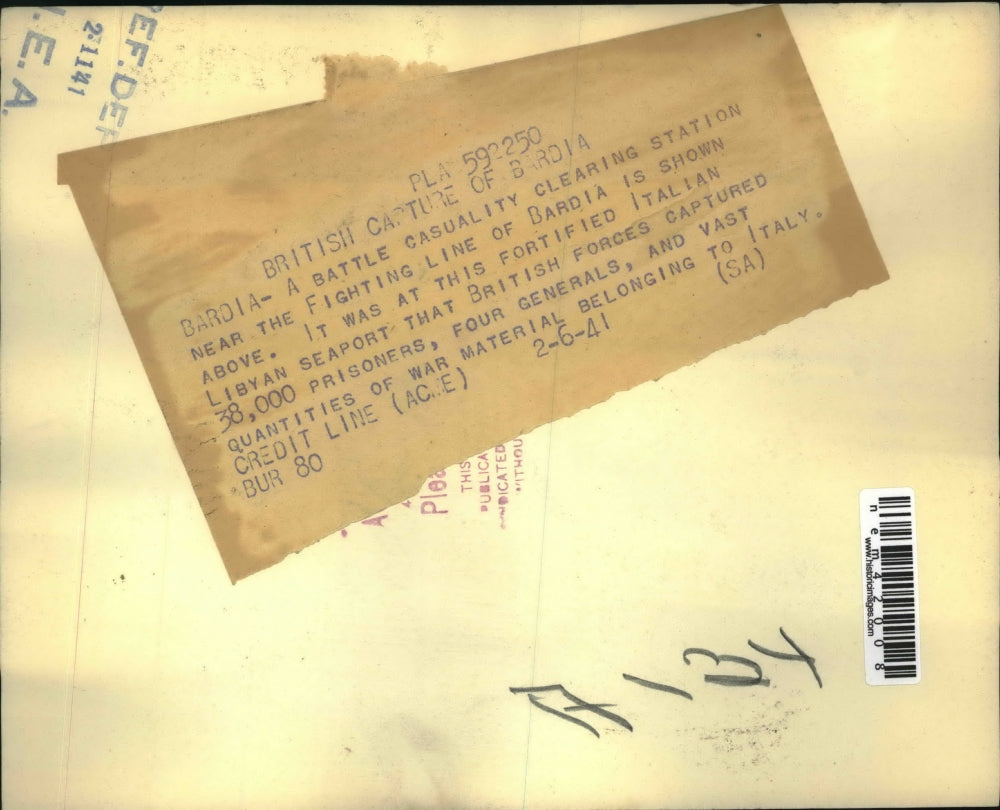 REF.DEP
21141
N.E.A.
PLA 592250
BRITISH CAPTURE OF BARDIA
BARDIA- A BATTLE CASUALITY CLEARING STATION
NEAR THE FIGHTING LINE OF BARDIA IS SHOWN
ABOVE. IT WAS AT THIS FORTIFIED ITALIAN
LIBYAN SEAPORT THAT BRITISH FORCES CAPTURED
38,000 PRISONERS, FOUR GENERALS, AND VAST
QUANTITIES OF WAR MATERIAL BELONGING TO ITALY.
CREDIT LINE (ACME) 2-6-41 (SA)
BUR 80
THIS
PUBLICA
WITHOU
nem42008
www.historicimages.com